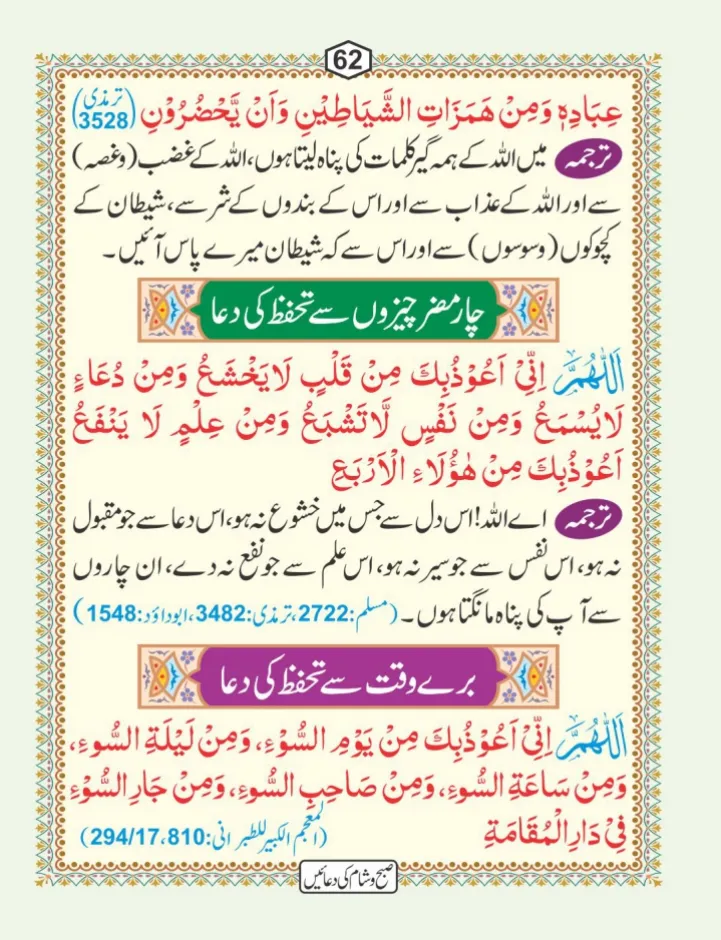 62
عِبَادِهٖ وَمِنْ هَمَزَاتِ الشَّيَاطِيْنِ وَاَنْ يَّحْضُرُوْنِ (ترمذی 3528)
ترجمہ میں اللہ کے ہمہ گیر کلمات کی پناہ لیتا ہوں، اللہ کے غضب (وغصہ)
سے اور اللہ کے عذاب سے اور اس کے بندوں کے شر سے، شیطان کے
کچوکوں (وسوسوں) سے اور اس سے کہ شیطان میرے پاس آئیں۔
چار مضر چیزوں سے تحفظ کی دعا
اَللّٰهُمَّ اِنِّیْ اَعُوْذُبِكَ مِنْ قَلْبٍ لَا يَخْشَعُ وَمِنْ دُعَاءٍ
لَا يُسْمَعُ وَمِنْ نَفْسٍ لَّا تَشْبَعُ وَمِنْ عِلْمٍ لَا يَنْفَعُ
اَعُوْذُبِكَ مِنْ هٰؤُلَاءِ الْاَرْبَعِ
ترجمہ اے اللہ! اس دل سے جس میں خشوع نہ ہو، اس دعا سے جو مقبول
نہ ہو، اس نفس سے جو سیر نہ ہو، اس علم سے جو نفع نہ دے، ان چاروں
سے آپ کی پناہ مانگتا ہوں۔ (مسلم: 2722، ترمذی: 3482، ابوداؤد: 1548)
برے وقت سے تحفظ کی دعا
اَللّٰهُمَّ اِنِّیْ اَعُوْذُبِكَ مِنْ يَوْمِ السُّوْءِ، وَمِنْ لَيْلَةِ السُّوءِ،
وَمِنْ سَاعَةِ السُّوءِ، وَمِنْ صَاحِبِ السُّوءِ، وَمِنْ جَارِ السُّوْءِ
فِیْ دَارِ الْمُقَامَةِ (المعجم الکبیر للطبرانی: 294/17،810)
صبح وشام کی دعائیں